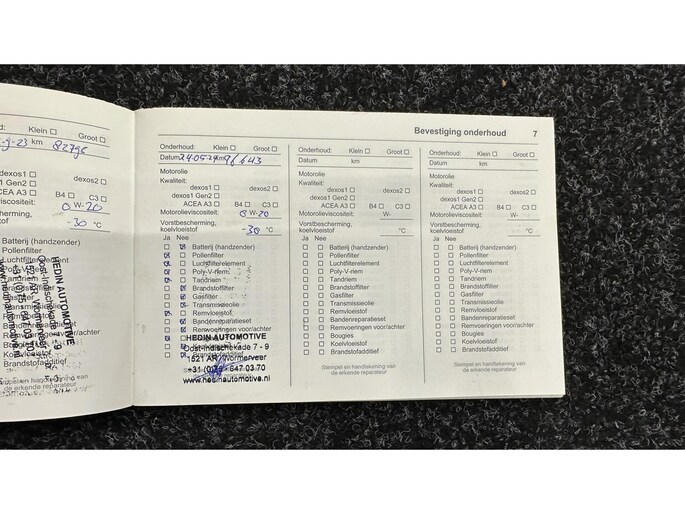 Bevestiging onderhoud 7
nderhoud: Klein Groot
-9-23 km 82795
dexos1 dexos2
Gen2
ACEA A3 B4 C3
0 W-20
-30 °C
Batterij (handzender)
Pollenfilter
HEDIN AUTOMOTIVE
de erkende reparateur
Onderhoud: Klein Groot
Datum 24-05-24 km 96643
Motorolie
Kwaliteit:
dexos1 dexos2
dexos1 Gen2
ACEA A3 B4 C3
Motorolieviscositeit: 0 W-20
Vorstbescherming,
koelvloeistof -30 °C
Ja Nee
Batterij (handzender)
Pollenfilter
Luchtfilterelement
Poly-V-riem
Tandriem
Brandstoffilter
Gasfilter
Transmissieolie
Remvloeistof
Bandenreparatieset
Remvoeringen voor/achter
HEDIN AUTOMOTIVE
Oost-Indischekade 7 - 9
1521 AR Wormerveer
+31 (0)75 - 647 03 70
www.hedinautomotive.nl
Onderhoud: Klein Groot
Datum km
Motorolie
Kwaliteit:
dexos1 dexos2
dexos1 Gen2
ACEA A3 B4 C3
Motorolieviscositeit: W-
Vorstbescherming,
koelvloeistof °C
Ja Nee
Batterij (handzender)
Pollenfilter
Luchtfilterelement
Poly-V-riem
Tandriem
Brandstoffilter
Gasfilter
Transmissieolie
Remvloeistof
Bandenreparatieset
Remvoeringen voor/achter
Bougies
Koelvloeistof
Brandstofadditief
Stempel en handtekening van
de erkende reparateur
Onderhoud: Klein Groot
Datum km
Motorolie
Kwaliteit:
dexos1 dexos2
dexos1 Gen2
ACEA A3 B4 C3
Motorolieviscositeit: W-
Vorstbescherming,
koelvloeistof °C
Ja Nee
Batterij (handzender)
Pollenfilter
Luchtfilterelement
Poly-V-riem
Tandriem
Brandstoffilter
Gasfilter
Transmissieolie
Remvloeistof
Bandenreparatieset
Remvoeringen voor/achter
Bougies
Koelvloeistof
Brandstofadditief
Stempel en handtekening van
de erkende reparateur